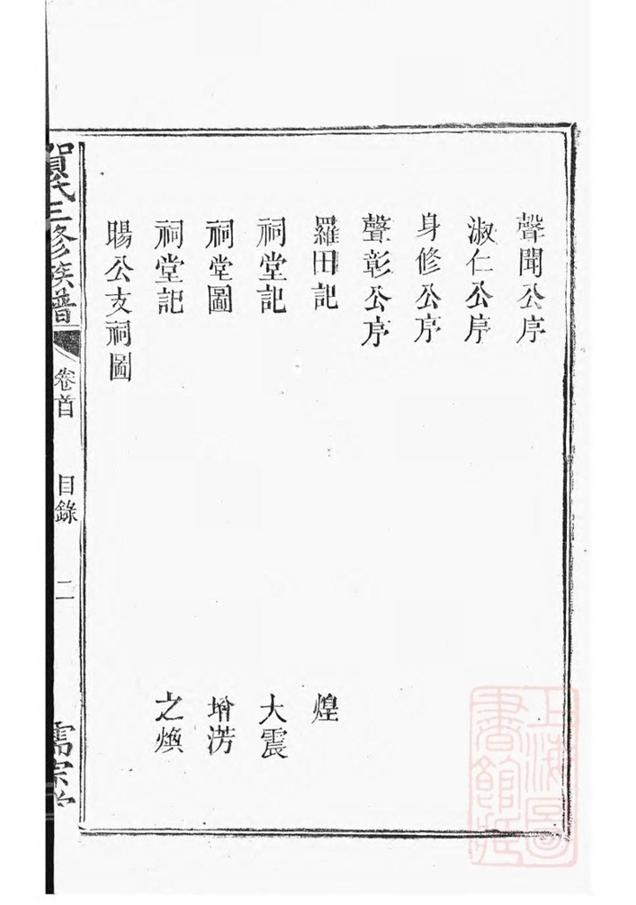 聲聞公序
淑仁公序
身修公序
聲彰公序
羅田記 煌
祠堂記 大震
祠堂圖 增淓
祠堂記 之煥
暘公支祠圖
賀氏三修族譜 卷首 目錄 二 儒宗堂
上海圖書館藏